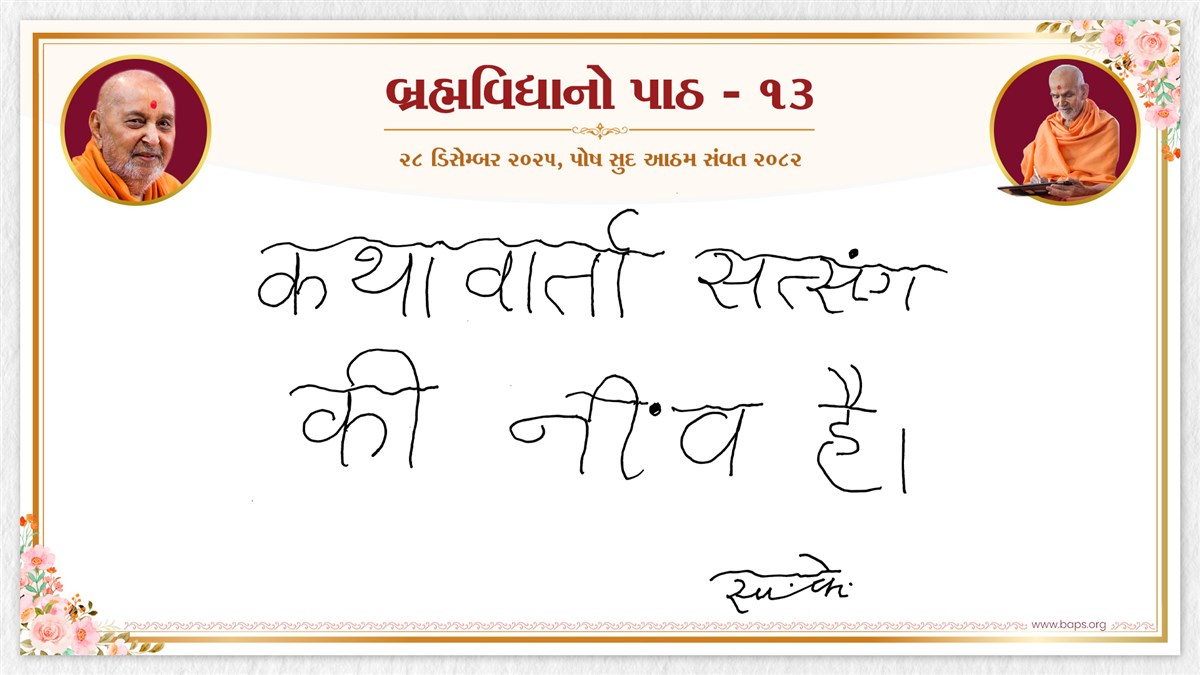 બ્રહ્મવિદ્યાનો પાઠ - ૧૩
૨૮ ડિસેમ્બર ૨૦૨૫, પોષ સુદ આઠમ સંવત ૨૦૮૨
कथावार्ता सत्संग
की नींव है।
www.baps.org